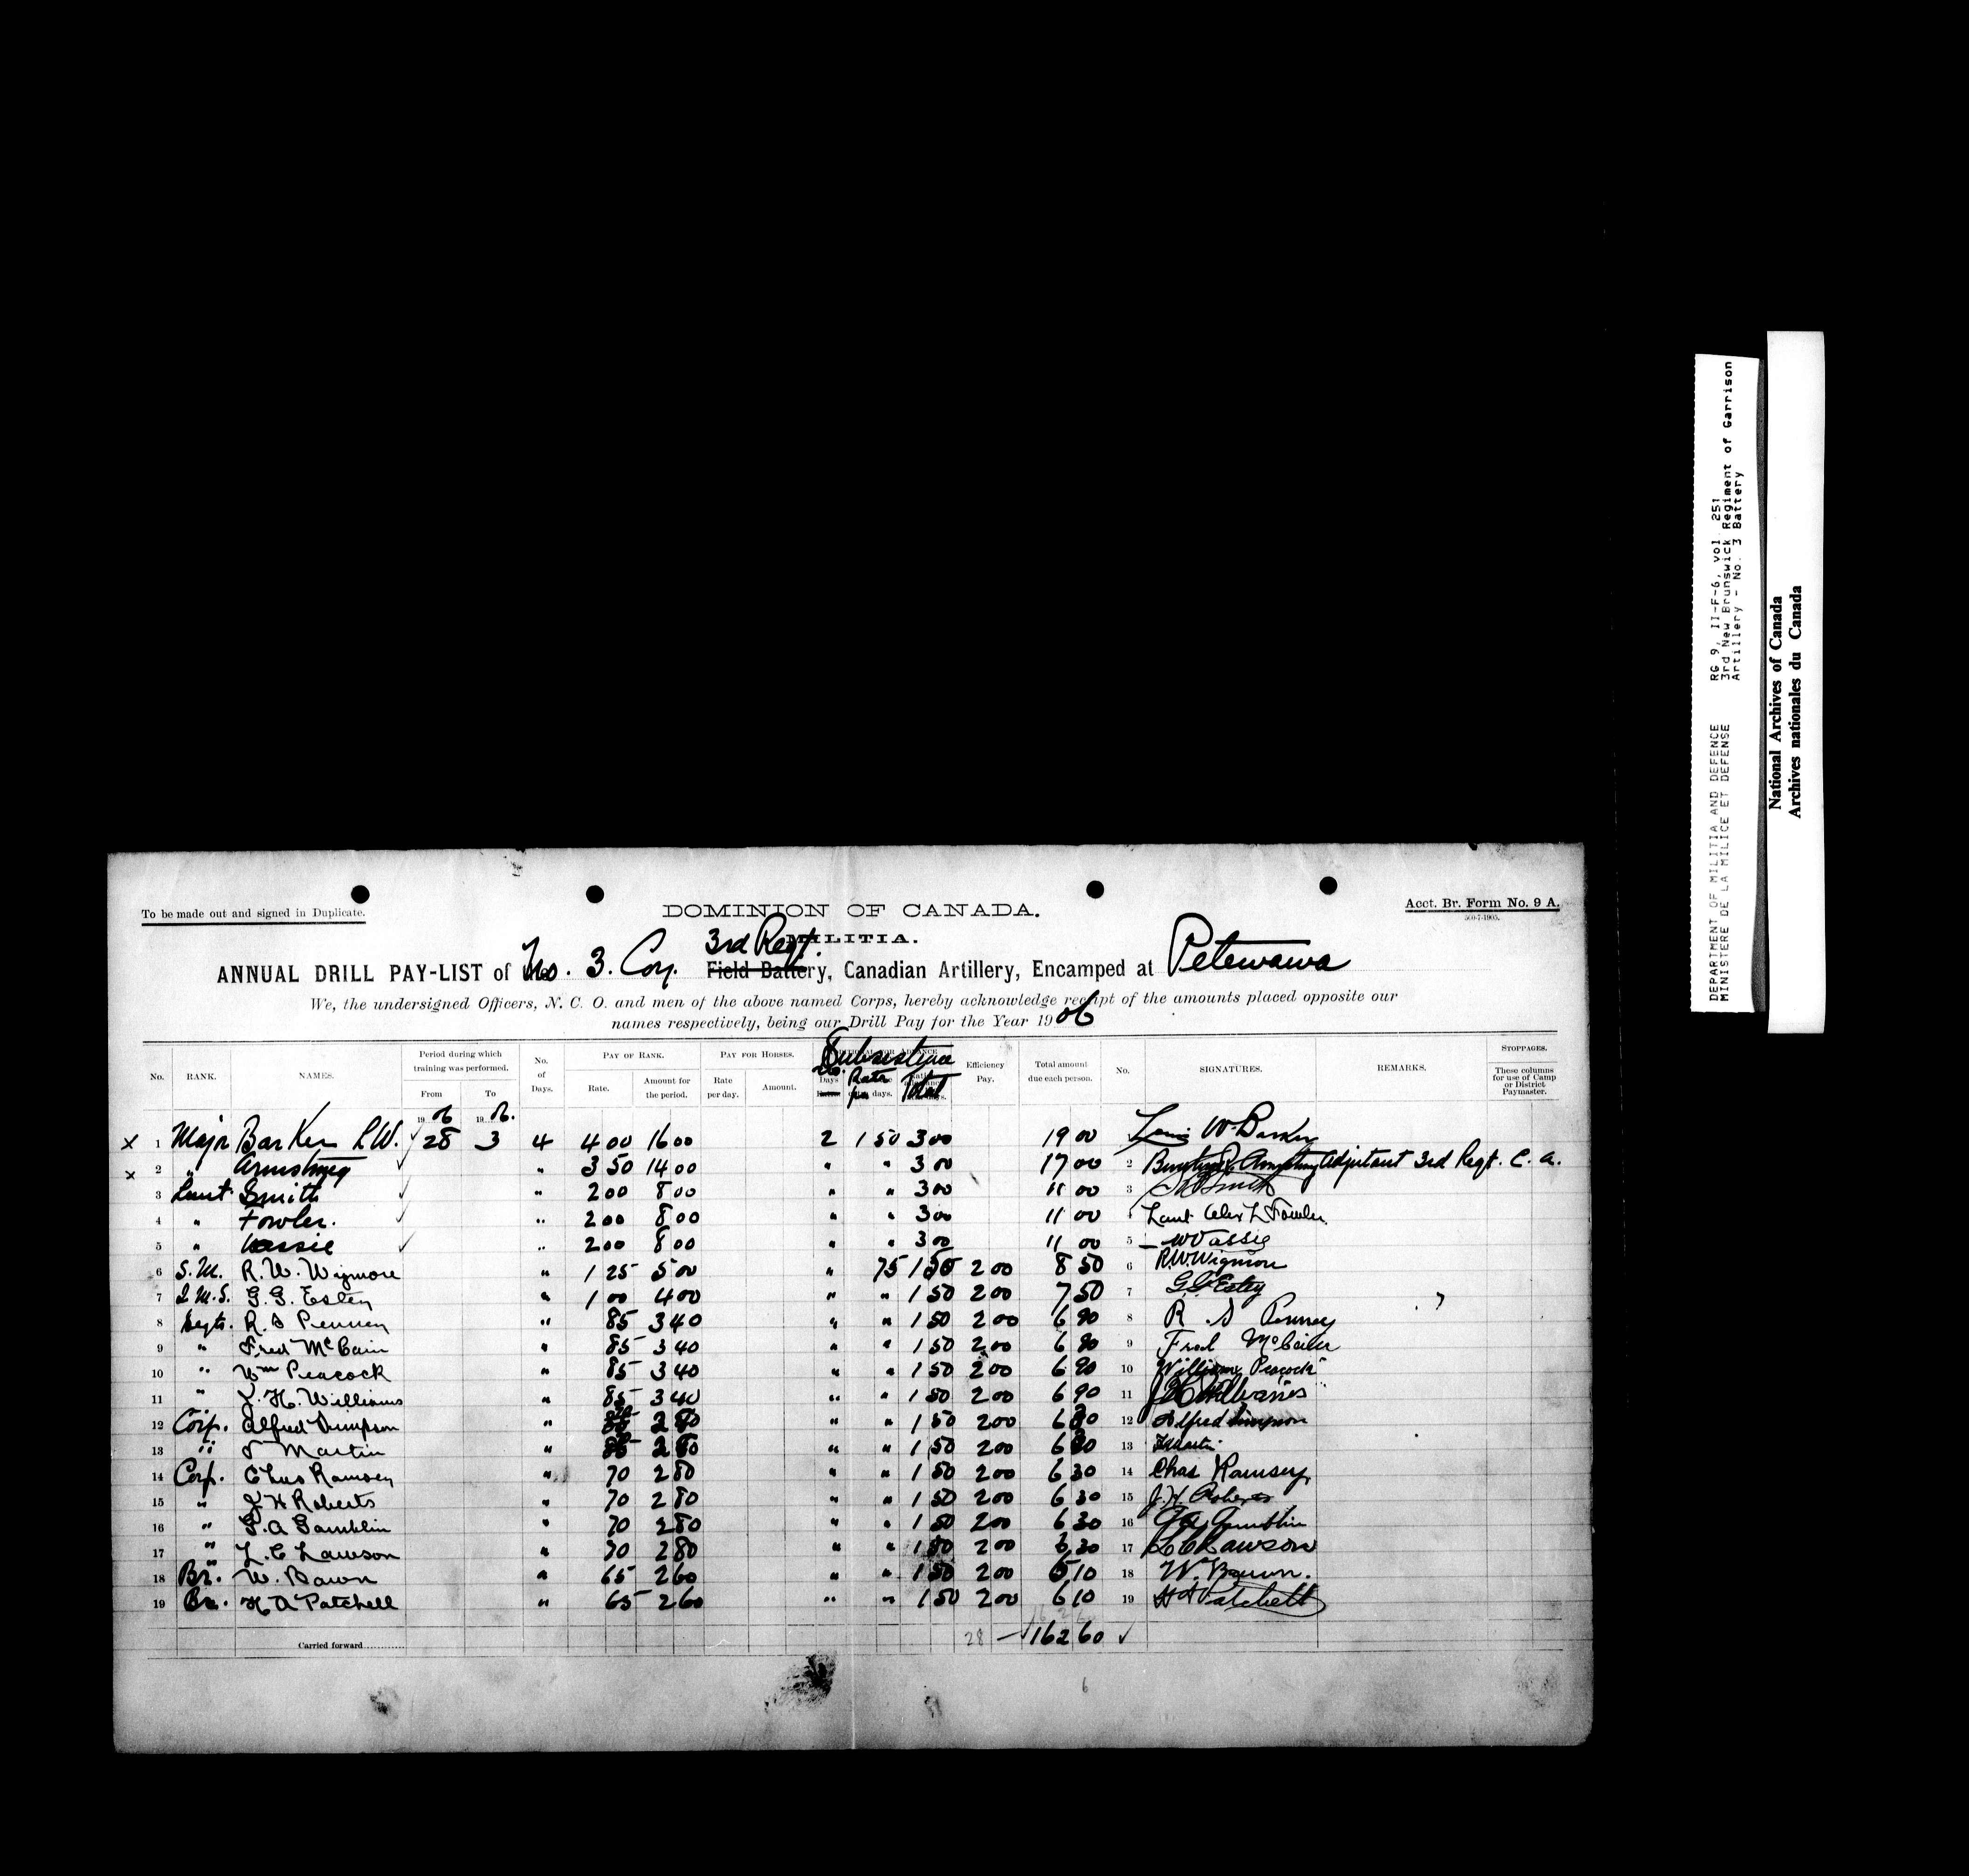 To be made out and signed in Duplicate.
DOMINION OF CANADA.
Acct. Br. Form No. 9 A.
500-7-1905.
MILITIA.
3rd Regt.
ANNUAL DRILL PAY-LIST of No. 3. Coy. Field Battery, Canadian Artillery, Encamped at Petewawa
We, the undersigned Officers, N. C. O. and men of the above named Corps, hereby acknowledge receipt of the amounts placed opposite our
names respectively, being our Drill Pay for the Year 1906
No. RANK. NAMES. Period during which training was performed. From To No. of Days. PAY OF RANK. Rate. Amount for the period. PAY FOR HORSES. Rate per day. Amount. Subsistence No. Days Rate per Total Efficiency Pay. Total amount due each person. No. SIGNATURES. REMARKS. STOPPAGES. These columns for use of Camp or District Paymaster.
1906 1906.
x 1 Major Barker L.W. ✓ 28 3 4 4 00 16 00 2 1 50 3 00 19 00 Louis W. Barker
x 2 " Armstrong ✓ " 3 50 14 00 " " 3 00 17 00 2 Armstrong Adjutant 3rd Regt. C. A.
3 Lieut Smith ✓ " 2 00 8 00 " " 3 00 11 00 3 Smith
4 " Fowler. ✓ " 2 00 8 00 " " 3 00 11 00 4 Lieut Alex L Fowler.
5 " Vassie ✓ " 2 00 8 00 " " 3 00 11 00 5 W Vassie
6 S.M. R. W. Wigmore " 1 25 5 00 " 75 1 50 2 00 8 50 6 R.W. Wigmore
7 Q.M.S. G. G. Estey " 1 00 4 00 " " 1 50 2 00 7 50 7 G. G. Estey
8 Sergts. R. S Penney " 85 3 40 " " 1 50 2 00 6 90 8 R. S Penney
9 " Fred McCain " 85 3 40 " " 1 50 2 00 6 90 9 Fred McCain
10 " Wm Peacock " 85 3 40 " " 1 50 2 00 6 90 10 William Peacock
11 " J. H. Williams " 85 3 40 " " 1 50 2 00 6 90 11 Williams
12 Corp. Alfred Simpson " 2 80 " " 1 50 2 00 6 30 12 Alfred Simpson
13 " Martin " 2 80 " " 1 50 2 00 6 30 13 Martin
14 Corp. Chas Ramsey " 70 2 80 " " 1 50 2 00 6 30 14 Chas Ramsey
15 " J H Roberts " 70 2 80 " " 1 50 2 00 6 30 15 J. H. Roberts
16 " G. A Gamblin " 70 2 80 " " 1 50 2 00 6 30 16 G A Gamblin
17 " L. C Lawson " 70 2 80 " " 1 50 2 00 6 30 17 L C Lawson
18 Br. W. Bawn " 65 2 60 " " 1 50 2 00 6 10 18 W. Bawn.
19 Br. H A Patchell " 65 2 60 " " 1 50 2 00 6 10 19 H A Patchell
Carried forward 28 — ✓ 162 60 ✓
6
DEPARTMENT OF MILITIA AND DEFENCE RG 9, II-F-6, vol. 251
MINISTERE DE LA MILICE ET DEFENSE 3rd New Brunswick Regiment of Garrison
Artillery - No. 3 Battery
National Archives of Canada
Archives nationales du Canada